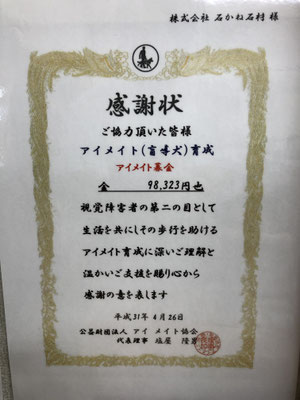 株式会社 石かね石材 様
感謝状
ご協力頂いた皆様
アイメイト(盲導犬)育成
アイメイト募金
金 98,323円也
視覚障害者の第二の目として
生活を共にしその歩行を助ける
アイメイト育成に深いご理解と
温かいご支援を賜り心から
感謝の意を表します
平成31年4月26日
公益財団法人 アイメイト協会
代表理事 塩屋 隆男